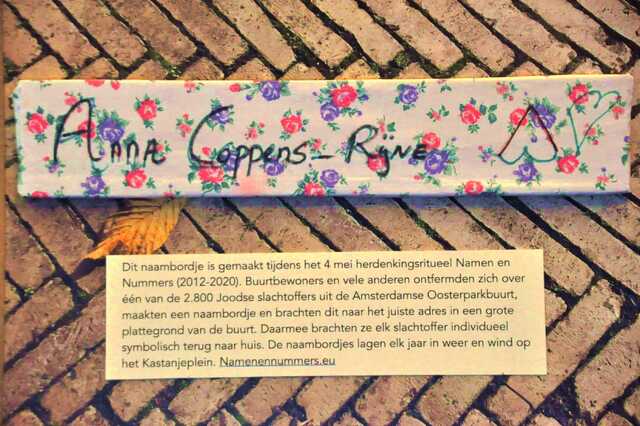 Anna Coppens-Rijne
Dit naambordje is gemaakt tijdens het 4 mei herdenkingsritueel Namen en
Nummers (2012-2020). Buurtbewoners en vele anderen ontfermden zich over
één van de 2.800 Joodse slachtoffers uit de Amsterdamse Oosterparkbuurt,
maakten een naambordje en brachten dit naar het juiste adres in een grote
plattegrond van de buurt. Daarmee brachten ze elk slachtoffer individueel
symbolisch terug naar huis. De naambordjes lagen elk jaar in weer en wind op
het Kastanjeplein. Namenennummers.eu